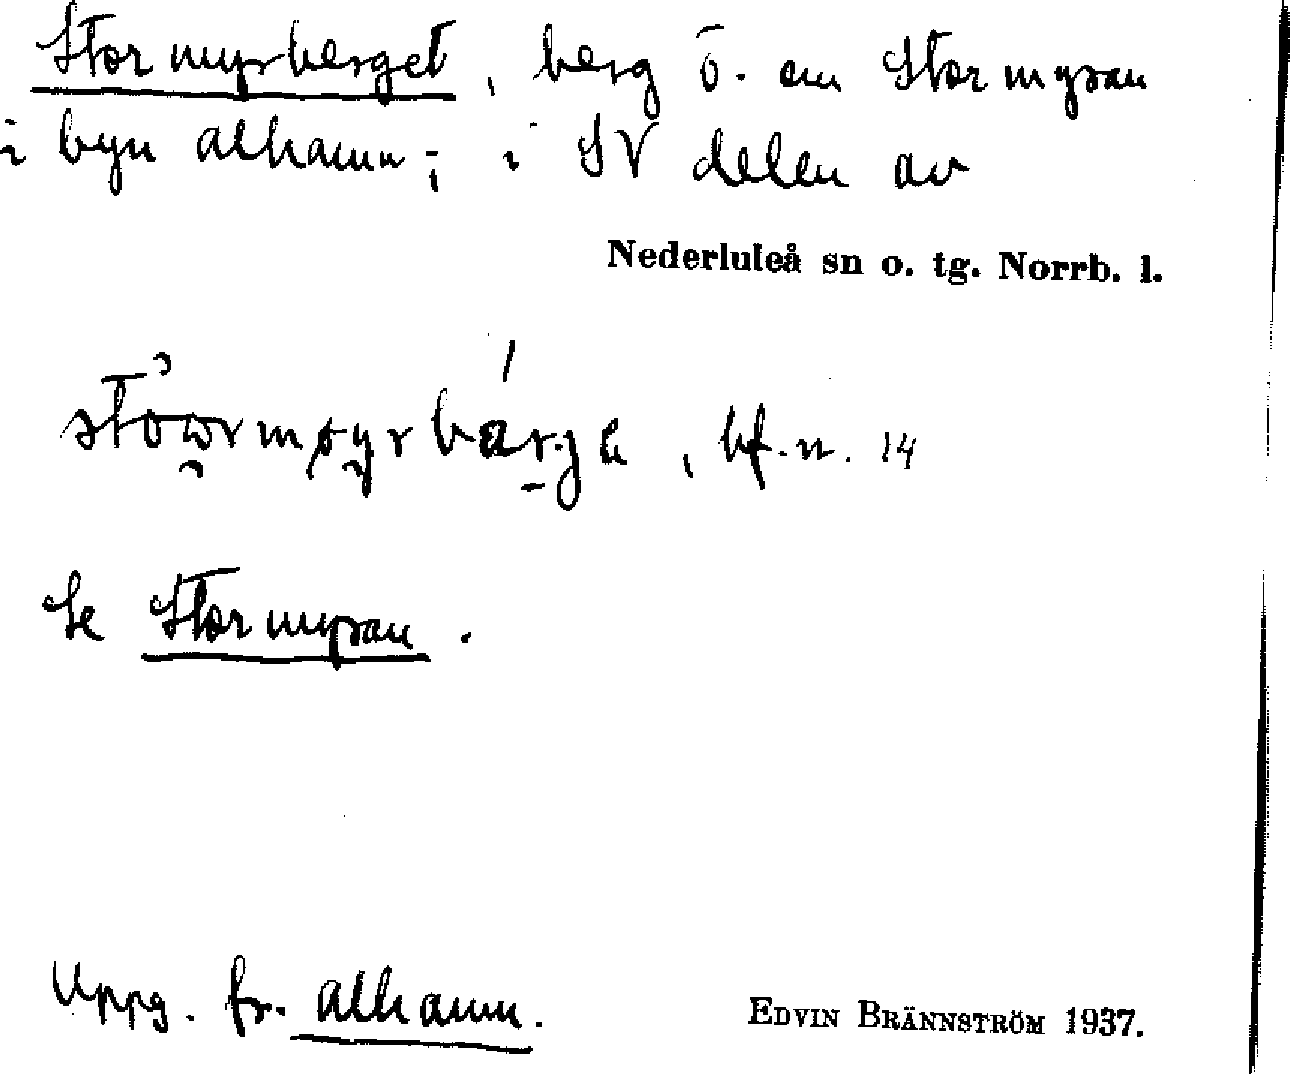 Stormyrberget, berg ö. om Stormyran
i byn Alhamn; i SV delen av
Nederluleå sn o. tg. Norrb. l.
bf. n. 14
Se Stormyran.
Uppg. fr. Alhamn.
EDVIN BRÄNNSTRÖM 1937.